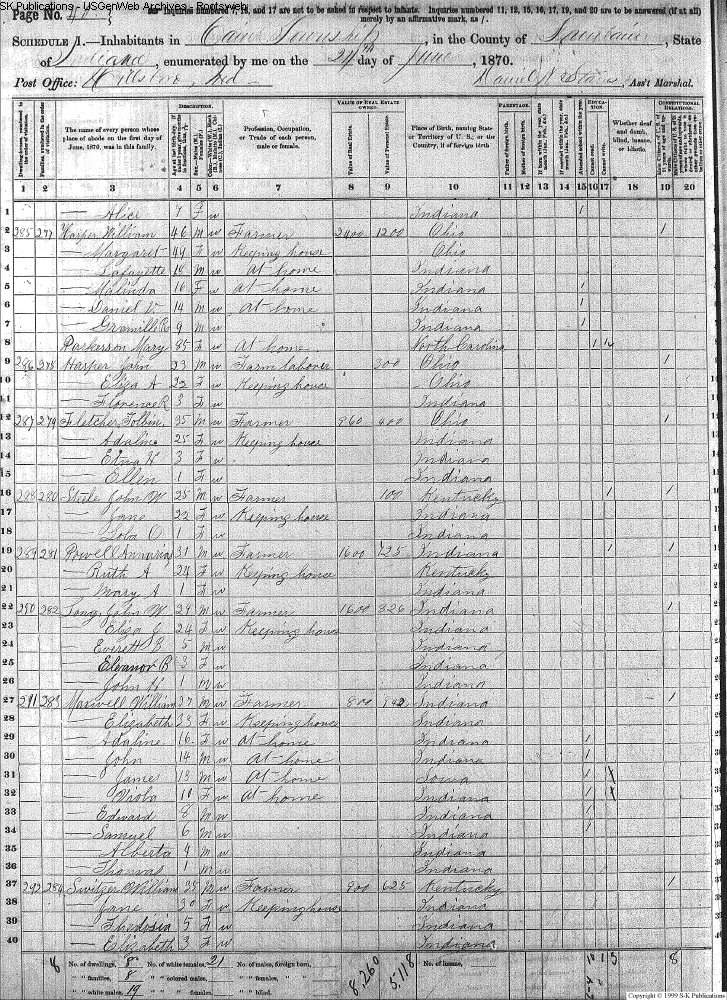 SK Publications - USGenWeb Archives - Rootsweb
Page No.
Inquiries numbered 7, 16, and 17 are not to be asked in respect to infants. Inquiries numbered 11, 12, 15, 16, 17, 19, and 20 are to be answered (if at all)
merely by an affirmative mark, as /.
Schedule 1.—Inhabitants in Cain Township, in the County of Fountain, State
of Indiana, enumerated by me on the 24th day of June, 1870.
Post Office: Hillsboro, Ind. Ass't Marshal.
DESCRIPTION. VALUE OF REAL ESTATE OWNED. PARENTAGE. EDUCATION. CONSTITUTIONAL RELATIONS.
The name of every person whose place of abode on the first day of June, 1870, was in this family.
Profession, Occupation, or Trade of each person, male or female.
Value of Real Estate. Value of Personal Estate.
Place of Birth, naming State or Territory of U. S.; or the Country, if of foreign birth.
Whether deaf and dumb, blind, insane, or idiotic.
1 2 3 4 5 6 7 8 9 10 11 12 13 14 15 16 17 18 19 20
1 — Alice 7 F w Indiana /
2 285 277 Harper William 46 M w Farmer 2400 1200 Ohio /
3 — Margaret 44 F w Keeping house Ohio
4 — Lafayette 18 M w At home Indiana
5 — Malinda 16 F w At home Indiana /
6 — Daniel V. 14 M w At home Indiana /
7 — 9 M w Indiana /
8 Parkerson Mary 85 F w At home North Carolina
9 286 278 Harper John 23 M w Farm laborer 300 Ohio /
10 — Eliza A 22 F w Keeping house Ohio
11 — Florence R 3 F w Indiana
12 287 279 Fletcher 35 M w Farmer 960 400 Ohio /
13 — Adaline 25 F w Keeping house Indiana
14 — 3 F w Indiana
15 — Ellen 1 F w Indiana
16 288 280 Steele John W 25 M w Farmer 100 Kentucky / /
17 — Jane 22 F w Keeping house Indiana
18 — 1 F w Indiana
19 289 281 Powell 31 M w Farmer 1600 625 Indiana /
20 — Ruth A 24 F w Keeping house Kentucky
21 — Mary A 1 F w Indiana
22 290 282 Long John W. 29 M w Farmer 1600 326 Indiana /
23 — Eliza J 24 F w Keeping house Indiana
24 — Everett B 5 M w Indiana
25 — Eleanor B 3 F w Indiana
26 — John H 1 M w Indiana
27 291 283 Maxwell William 37 M w Farmer 800 Indiana /
28 — Elizabeth 33 F w Keeping house Indiana
29 — Adaline 16 F w At home Indiana /
30 — John 14 M w At home Indiana /
31 — James 13 M w At home Iowa /
32 — Viola 10 F w At home Indiana /
33 — Edward 8 M w Indiana /
34 — Samuel 6 M w Indiana /
35 — Alberto 4 M w Indiana
36 — Thomas 1 M w Indiana
37 292 284 Switzer William 35 M w Farmer 900 625 Kentucky /
38 — Jane 30 F w Keeping house Indiana
39 — Thedosia 5 F w Indiana
40 — Elizabeth 3 F w Indiana
8 No. of dwellings, 8 No. of white females, 21 No. of males, foreign born, 8,260 5,118 No. of insane, 8
" " families, 8 " " colored males, " " females, "
" " white males, 19 " " females, " " blind.
Copyright © 1999 S-K Publications